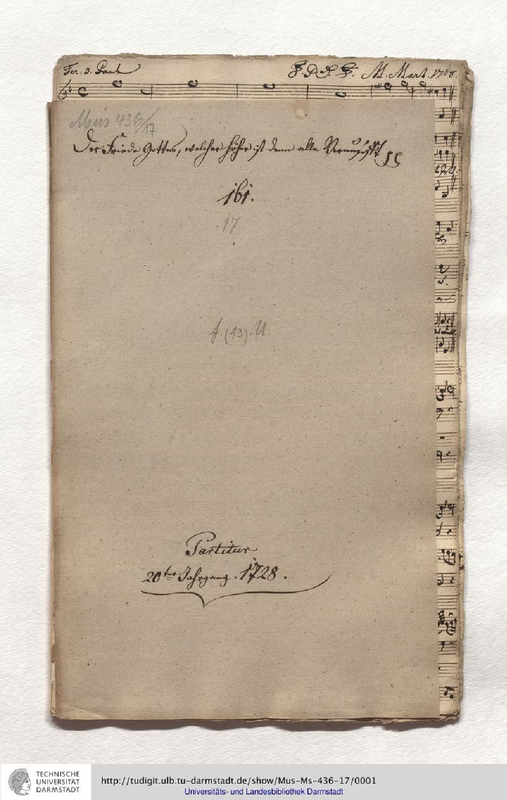 Fer. 3. Pasch
F. D. F. G. M. Mart. 1728.
Mus 436/17
Der Friede Gottes, welcher höher ist denn alle Vernunfft
161.
17
f. (13) U.
Partitur
20ter Jahrgang. 1728.
TECHNISCHE
UNIVERSITÄT
DARMSTADT
http://tudigit.ulb.tu-darmstadt.de/show/Mus-Ms-436-17/0001
Universitäts- und Landesbibliothek Darmstadt